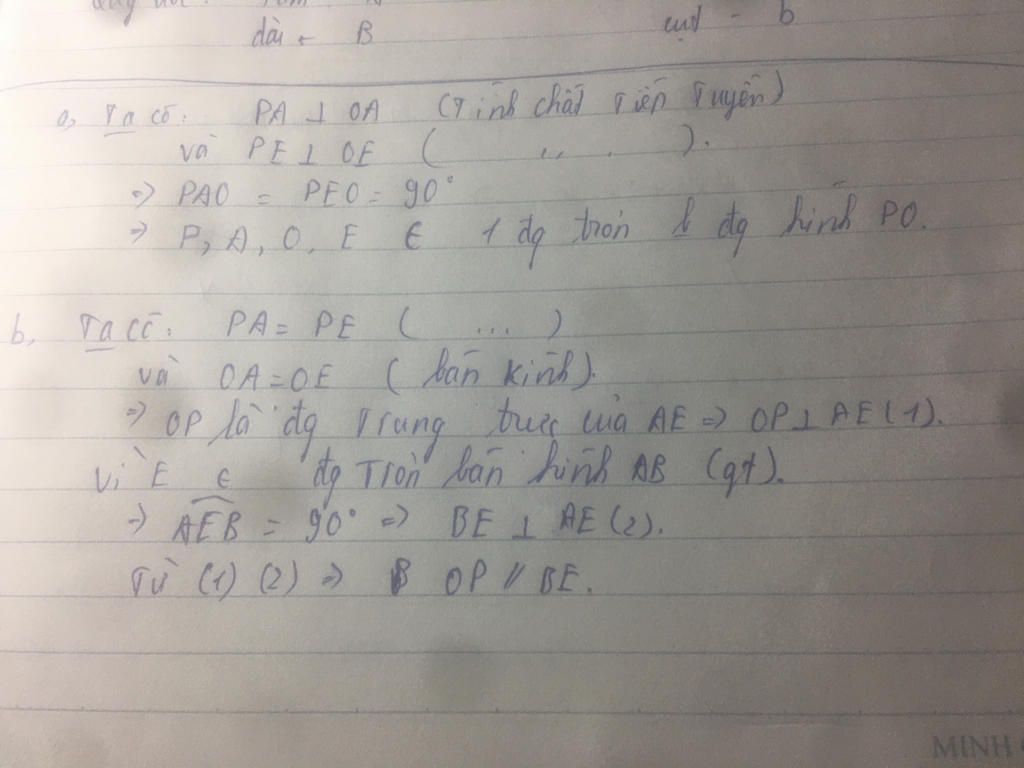 dài - B cụt - b
a, Ta có: PA ⊥ OA (Tính chất Tiếp Tuyến)
và PE ⊥ OE ( ,, . ).
=> PAO = PEO = 90°
=> P, A, O, E ∈ 1 đg tròn đg kính PO.
b, Ta có: PA = PE ( ... )
và OA = OE ( bán kính).
=> OP là đg Trung trực của AE => OP ⊥ AE (1).
Vì E ∈ đg Tròn bán kính AB (gt).
-> AEB = 90° => BE ⊥ AE (2).
Từ (1) (2) => OP // BE.
MINH